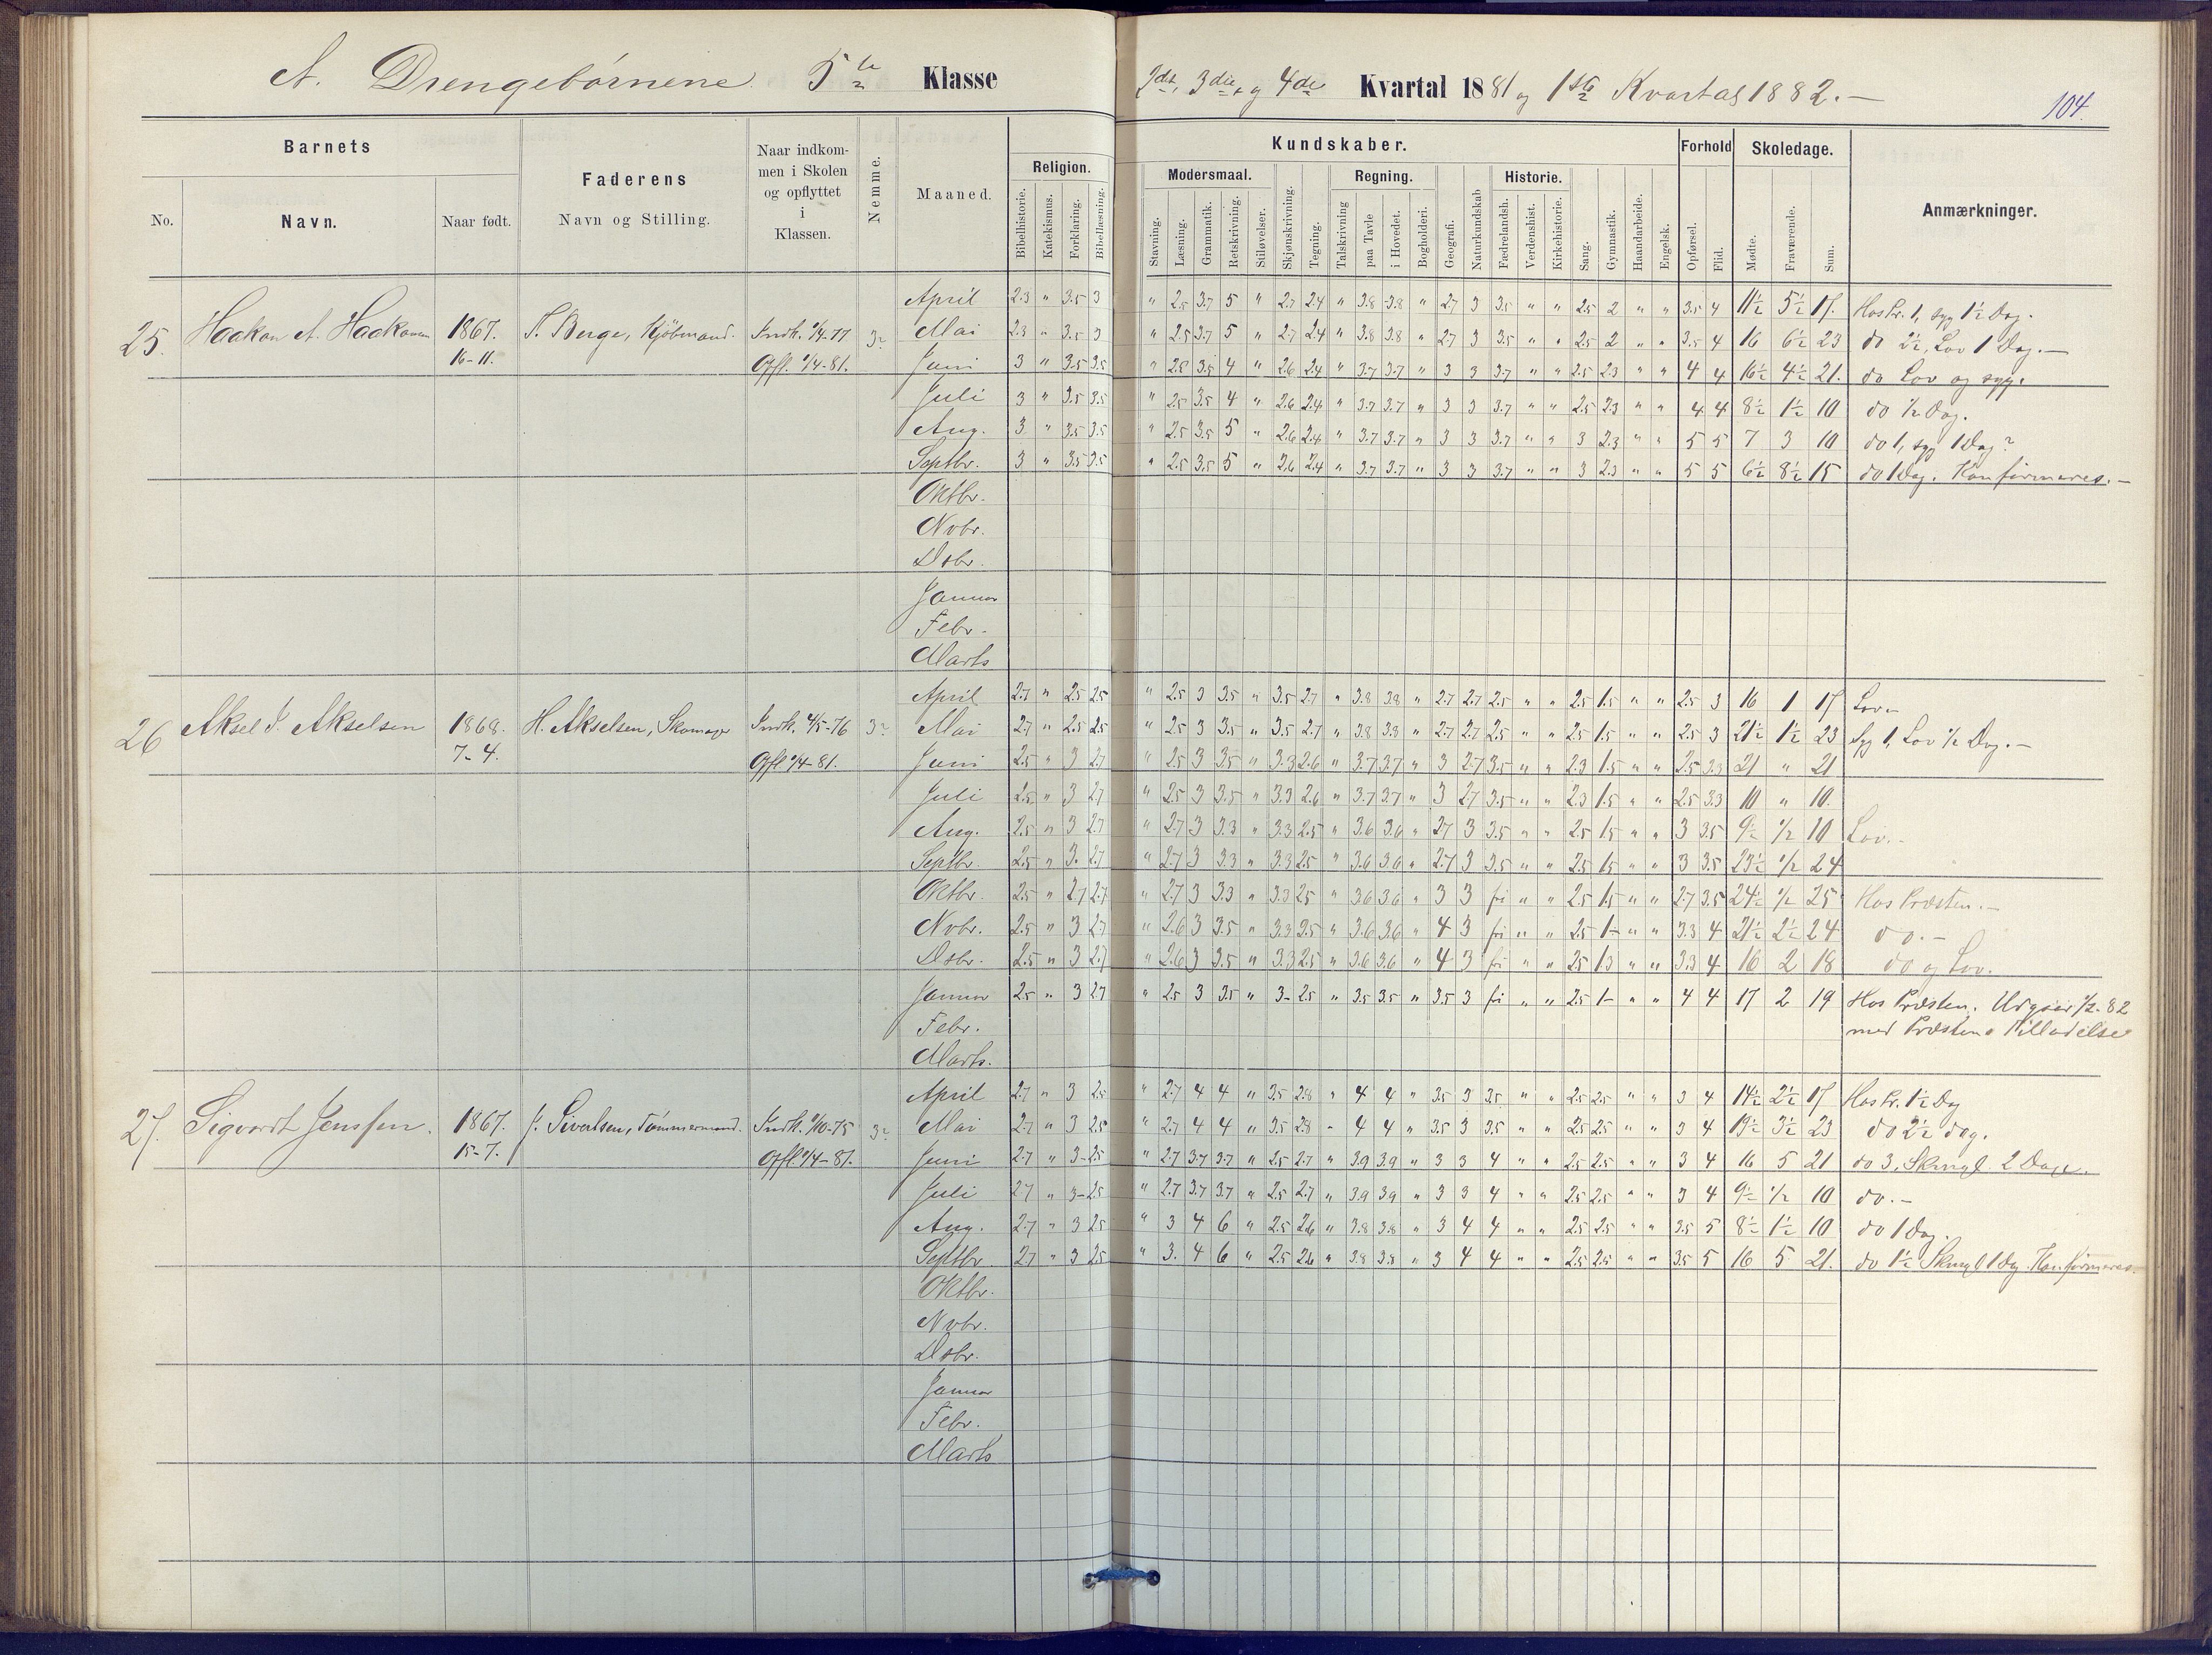 A. Drengebørnene 5te Klasse 2det, 3die, og 4de Kvartal 1881 og 1ste Kvartal 1882. —
104.
Barnets Kundskaber. Forhold Skoledage.
No. Navn. Naar født. Faderens Navn og Stilling. Naar indkommen i Skolen og opflyttet i Klassen. Nemme. Maaned. Religion. Modersmaal. Regning. Historie. Anmærkninger.
Bibelhistorie. Katekismus. Forklaring. Bibellæsning. Stavning. Læsning. Grammatik. Retskrivning. Stiløvelser. Skjønskrivning. Tegning. Talskrivning paa Tavle i Hovedet. Bogholderi. Geografi. Naturkundskab Fædrelandsh. Verdenshist. Kirkehistorie. Sang. Gymnastik. Haandarbeide. Engelsk. Opførsel. Flid. Mødte. Fraværende. Sum.
April 2.3 " 3.5 3 " 2.5 3.7 5 " 2.7 2.4 " 3.8 3.8 " 2.7 3 3.5 " " 2.5 2 " " 3.5 4 11½ 5½ 17. Hos Pr. 1, syg 1½ Dag.
25. Haakon A. Haakonsen 1867. T. Berge, Kjøbmand. Indk. 1/4-77 3 Mai 2.3 " 3.5 3 " 2.5 3.7 5 " 2.7 2.4 " 3.8 3.8 " 2.7 3 3.5 " " 2.5 2 " " 3.5 4 16 6½ 23 do 2½, Lov 1 Dag. —
16-11. Opfl. 1/4-81. Juni 3 " 3.5 3.5 " 2.5 3.5 4 " 2.6 2.4 " 3.7 3.7 " 3 3 3.7 " " 2.5 2.3 " " 4 4 16½ 4½ 21. do Lov og syg.
Juli 3 " 3.5 3.5 " 2.5 3.5 4 " 2.6 2.4 " 3.7 3.7 " 3 3 3.7 " " 2.5 2.3 " " 4 4 8½ 1½ 10 do ½ Dag.
Aug. 3 " 3.5 3.5 " 2.5 3.5 5 " 2.6 2.4 " 3.7 3.7 " 3 3 3.7 " " 3 2.3 " " 5 5 7 3 10 do 1, syg 1 Dag?
Septbr. 3 " 3.5 3.5 " 2.5 3.5 5 " 2.6 2.4 " 3.7 3.7 " 3 3 3.7 " " 3 2.3 " " 5 5 6½ 8½ 15 do 1 Dag. Konfirmeres. —
Oktbr.
Novbr.
Dsbr.
Januar
Febr.
Marts
April 2.7 " 2.5 2.5 " 2.5 3 3.5 " 3.5 2.7 " 3.8 3.8 " 2.7 2.7 2.5 " " 2.5 1.5 " " 2.5 3 16 1 17 Lov. —
26 Aksel I. Akselsen 1868. H. Akselsen, Skomager Indk. 4/5-76 3 Mai 2.7 " 2.5 2.5 " 2.5 3 3.5 " 3.5 2.7 " 3.8 3.8 " 2.7 2.7 2.5 " " 2.5 1.5 " " 2.5 3 21½ 1½ 23 Syg 1, Lov ½ Dag. —
7-4. Opfl. 1/4-81. Juni 2.5 " 3 2.7 " 2.5 3 3.5 " 3.3 2.6 " 3.7 3.7 " 3 2.7 3.5 " " 2.3 1.5 " " 2.5 3.3 21 " 21
Juli 2.5 " 3 2.7 " 2.5 3 3.5 " 3.3 2.6 " 3.7 3.7 " 3 2.7 3.5 " " 2.3 1.5 " " 2.5 3.3 10 " 10.
Aug. 2.5 " 3 2.7 " 2.7 3 3.3 " 3.3 2.5 " 3.6 3.6 " 2.7 3 3.5 " " 2.5 1.5 " " 3 3.5 9½ ½ 10 Lov. —
Septbr. 2.5 " 3. 2.7 " 2.7 3 3.3 " 3.3 2.5 " 3.6 3.6 " 2.7 3 3.5 " " 2.5 1.5 " " 3 3.5 23½ ½ 24
Oktbr. 2.5 " 2.7 2.7 " 2.7 3 3.3 " 3.3 2.5 " 3.6 3.6 " 3 3 fri " " 2.5 1.5 " " 2.7 3.5 24½ ½ 25 Hos Præsten. —
Novbr. 2.5 " 3 2.7 " 2.6 3 3.5 " 3.3 2.5 " 3.6 3.6 " 4 3 fri " " 2.5 1- " " 3.3 4 21½ 2½ 24 do. —
Dsbr. 2.5 " 3 2.7 " 2.6 3 3.5 " 3.3 2.5 " 3.6 3.6 " 4 3 fri " " 2.5 1.3 " " 3.3 4 16 2 18 do og Lov.
Januar 2.5 " 3 2.7 " 2.5 3 3.5 " 3- 2.5 " 3.5 3.5 " 3.5 3 fri " " 2.5 1- " " 4 4 17 2 19 Hos Præsten. Udgaar 1/2-82
Febr. med Præstens Tilladelse
Marts.
April 2.7 " 3 2.5 " 2.7 4 4 " 3.5 2.8 " 4 4 " 3.5 3 3.5 " " 2.5 2.5 " " 3 4 14½ 2½ 17 Hos Pr. 1½ Dag
27. Sigvardt Jenssen. 1867. J. Sivertsen, Tømmermand. Indk. 1/10-75 3 Mai 2.7 " 3 2.5 " 2.7 4 4 " 3.5 2.8 " 4 4 " 3.5 3 3.5 " " 2.5 2.5 " " 3 4 19½ 3½ 23 do 2½ dag.
15-7. Opfl. 1/4-81. Juni 2.7 " 3- 2.5 " 2.7 3.7 3.7 " 2.5 2.7 " 3.9 3.9 " 3 3 4 " " 2.5 2.5 " " 3 4 16 5 21 do 3, Skingl. 2 Dage.
Juli 2.7 " 3- 2.5 " 2.7 3.7 3.7 " 2.5 2.7 " 3.9 3.9 " 3 3 4 " " 2.5 2.5 " " 3 4 9½ ½ 10 do. —
Aug. 2.7 " 3 2.5 " 3 4 6 " 2.5 2.6 " 3.8 3.8 " 3 4 4 " " 2.5 2.5 " " 3.5 5 8½ 1½ 10 do 1 Dag.
Septbr. 2.7 " 3 2.5 " 3. 4 6 " 2.5 2.6 " 3.8 3.8 " 3 4 4 " " 2.5 2.5 " " 3.5 5 16 5 21. do 1½ 1 Dag. Konfirmeres.
Oktbr.
Nvbr.
Dsbr.
Januar
Febr.
Marts